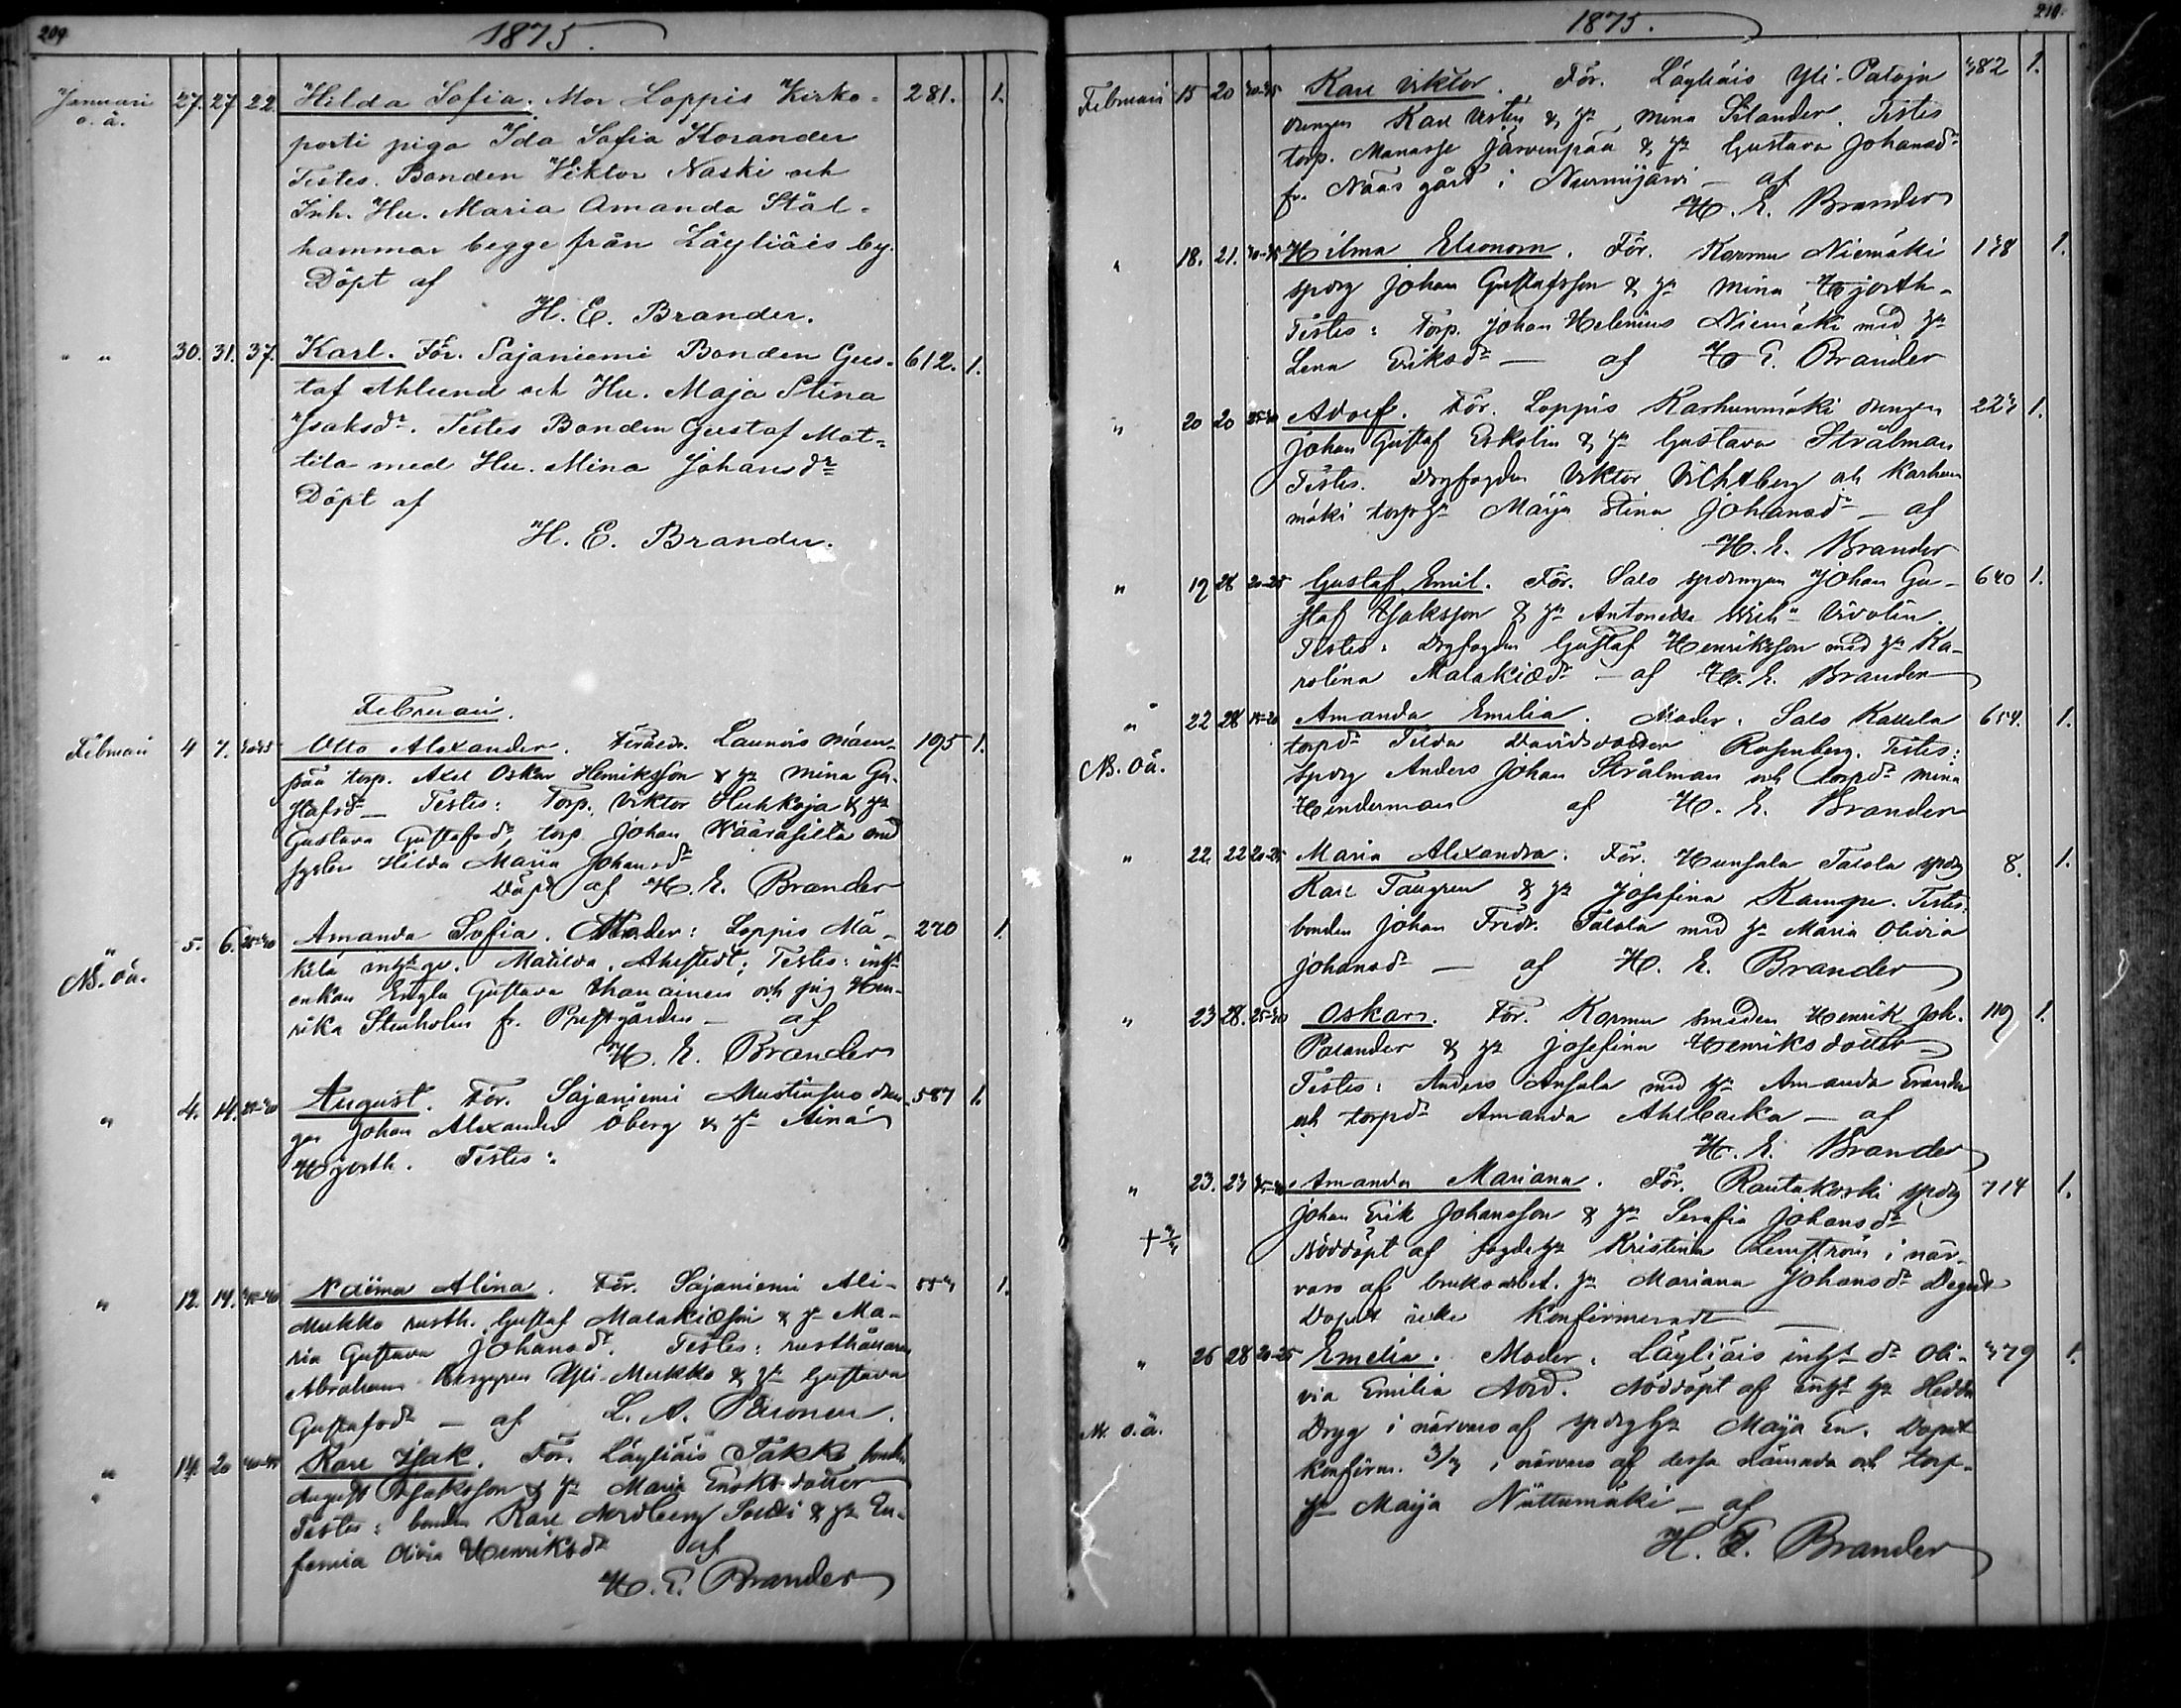 209
1875.
Januari 27. 27. 22. Hilda Sofia. Mor Loppis Kirko- 281. 1.
o. ä.
porti piga Ida Sofia Korander
Testes. Bonden Viktor Naski och
Inh. Hu. Maria Amanda Stål-
hammar begge från Läyliäis by.
Döpt af
H. E. Brander.
" " 30. 31. 37. Karl. För. Sajaniemi Bonden Gus- 612. 1.
taf Ahlund och Hu. Maja Stina
Isaksdr. Testes Bonden Gustaf Mat-
tila med Hu. Mina Johansdr
Döpt af
H. E. Brander.
Februari.
Februari 4 7. Otto Alexander. Launois 195 1.
pää torp. Axel Oskar Henriksson & hu Mina Gu-
stafsdr — Testes: Torp. Viktor Huhkoja & hu
Gustava Gustafsdr, torp. Johan Wääräsilta med
Hilda Maria Johansdr
Döpt af H. E. Brander
" 5. 6. Amanda Sofia. Moder: Loppis Mä- 270 1.
NB. oä.
kelä Matilda Ahlstedt; Testes: inhs
enkan Engla Gustava och pig Hen-
rika Stenholm fr. Prestgården — af
H. E. Brander
" 4. 14. August. För. Sajaniemi Mustinsuo dren- 587 1.
gen Johan Alexander Öberg & hu Aina
Hjorth. Testes:
" 12. 14. Naima Alina. För. Sajaniemi Ali- 1.
Mukko rusth. Gustaf Malakiasson & hu Ma-
ria Gustava Johansd. Testes: rusthållaren
Abraham Yli-Mukko & hu Gustava
Gustafsdr — af L. A.
" 14. 20 Karl Isak. För. Läyliäis bonden
August Isaksson & hu Maria dotter
Testes: bonden Karl Nordberg & hu Eu-
femia Olivia Henriksdr af
H. E. Brander
210.
1875.
Februari 15 20 Karl Viktor. För. Läyliäis Yli-Patoja 382 1.
drengen Karl & hu Mina Silander. Testes
torp. Manasse Järvenpää & hu Gustava Johansdr
fr. Nääs gård i Nurmijärvi — af
H. E. Brander
" 18. 21. Hilma Eleonora. För. Kormu Niemäki 148 1.
spdrg Johan Gustafsson & hu Mina Hjorth-
Testes: Torp. Johan Helenius Niemäki med hu
Lena Eriksdr — af H. E. Brander
" 20 20 Adolf. För. Loppis Karhunmäki drengen 1.
Johan Gustaf Eskolin & hu Gustava Strålman
Testes. Viktor och Karhun
mäki torphu Maija Stina Johansdr — af
H. E. Brander
" 19 28 20-25 Gustaf Emil. För. Salo spdrengen Johan Gu- 640 1.
staf Isaksson & hu
Testes: Gustaf Henriksson med hu Ka-
rolina Malakiædr — af H. E. Brander
" 22 28 15-20 Amanda Emilia. Moder: Salo 654. 1.
NB. Oä.
torpdr Tilda Davidsdotter Rosenberg. Testes:
Spdrg Anders Johan Strålman och torpdr Mina
Henderman af H. E. Brander
" 22. 22 20-25 Maria Alexandra. För. Hunsala Talola spdrg 8. 1.
Karl Taugren & hu Josefina Kampe. Testes:
bonden Johan Fredr. Talola med hu Maria Olivia
Johansdr — af H. E. Brander
" 23 28. Oskar. För. Kormu smeden Henrik Joh. 119 1.
Palander & hu Josefina Henriksdotter
Testes: Anders med hu Amanda
och torpdr Amanda Ahlbacka — af
H. E. Brander
" 23. 23 Amanda Mariana. För. Rautakoski spdrg 714 1.
Johan Erik Johansson & hu Serafia Johansdr
Nöddöpt af fogdehu Kristina Lemström i när-
varo af bruksarbet. hu Mariana Johansdr
Dopet icke Konfirmeradt —
" 26 28 20-25 Emelia. Moder: Läyliäis inhs dr Oli- 379 1.
via Emilia Nord. Nöddöpt af inhs hu Hedda
N. o.ä.
Dryg i närvaro af spdrghu Maija En. Dopet
konfirm. i närvaro af dessa nämnda och torp-
hu Maija Niittumäki — af
H. E. Brander